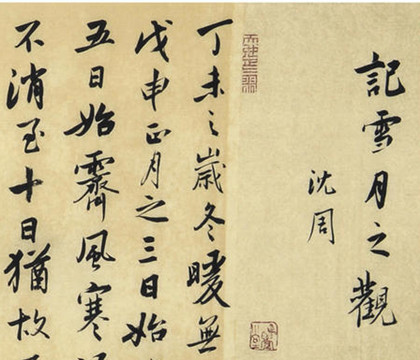 記雪月之觀
沈周
丁未之歲冬暖無
戊申正月之三日始
五日始霽風寒
不消至十日猶故